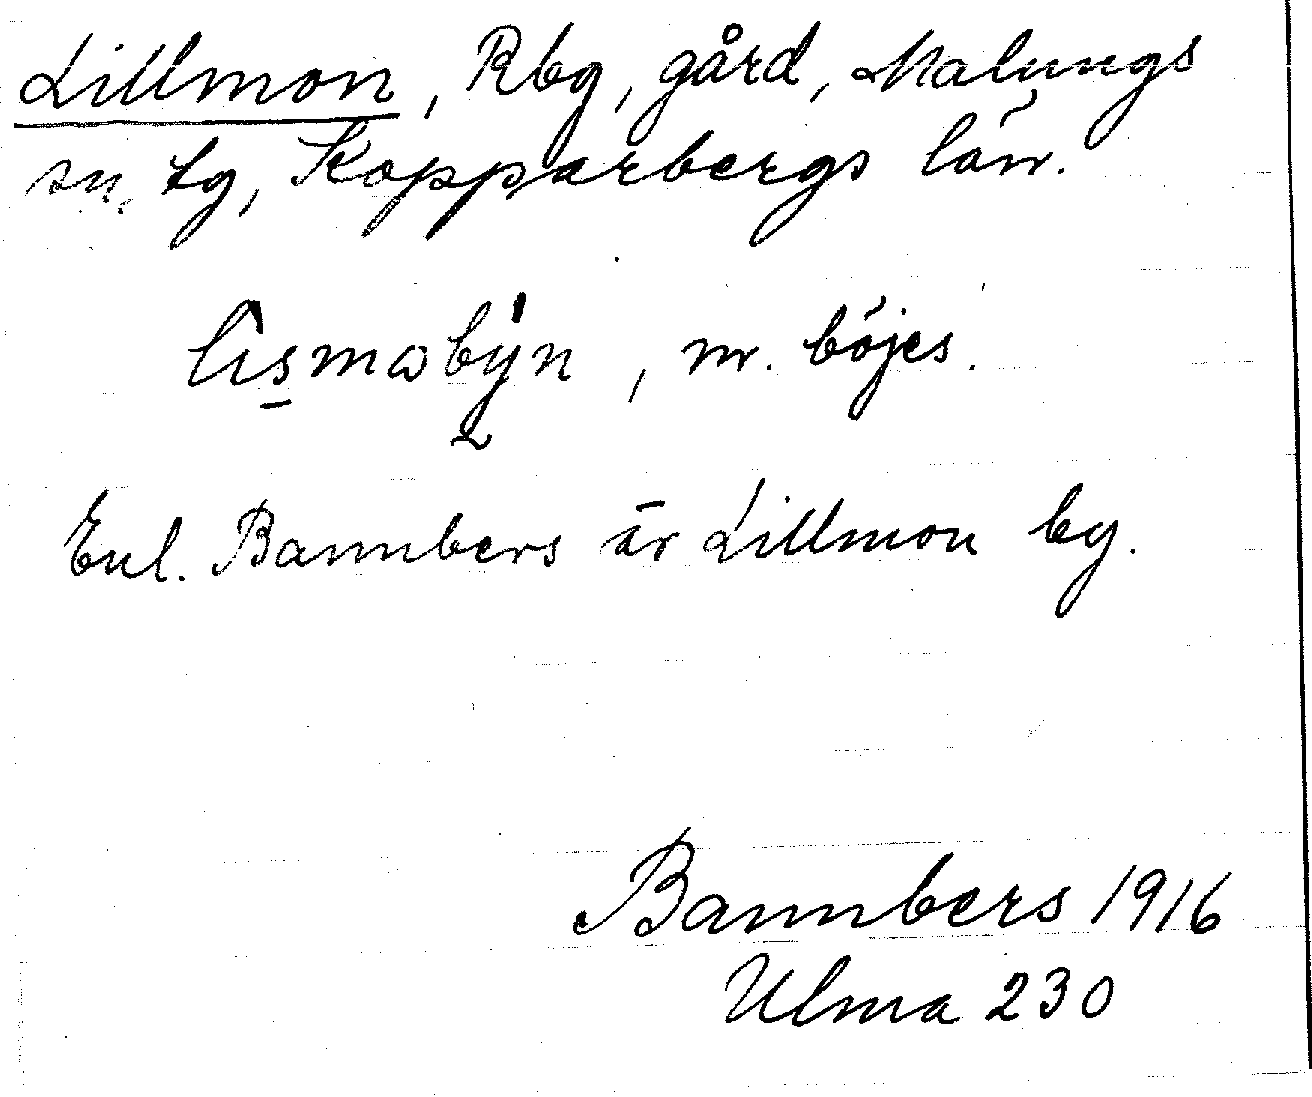 Lillmon, Rbg, gård, Malungs
sn, tg, Kopparbergs län.
, nr. böjes.
Enl. Bannbers är Lillmon by.
Bannbers 1916
Ulma 230